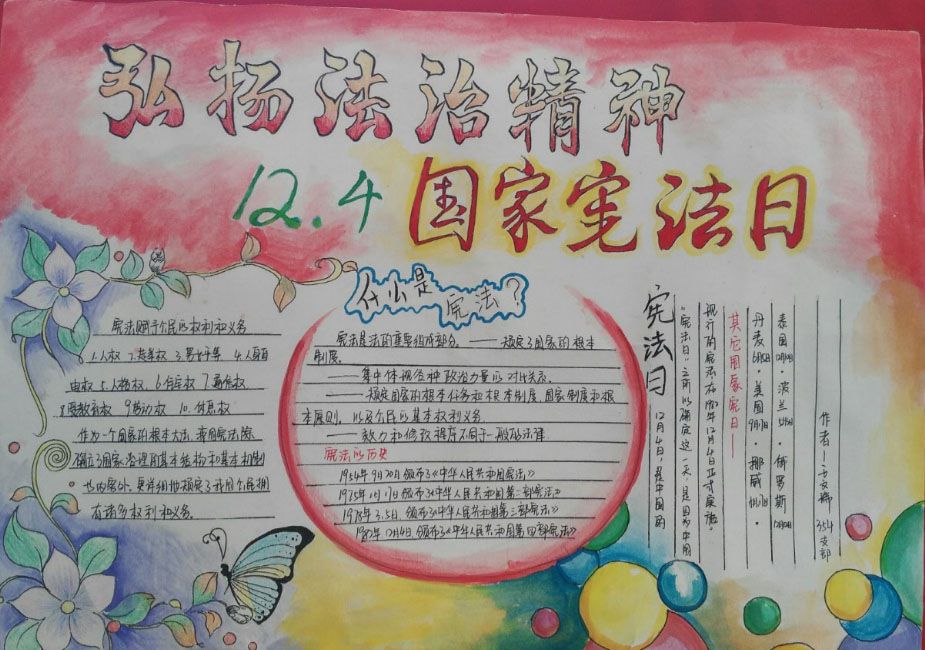 弘扬法治精神
12.4 国家宪法日
什么是宪法?
宪法赋予个民的权利和义务
1.人权 2.选举权 3.男女平等 4.人身自
由权 5.人格权 6.住宅权 7.通信权
8.受教育权 9.劳动权 10.休息权
作为一个国家的根本大法,
确立了国家治理的基本结构和基本机制
也的窗外,更详细地规定了我国个民拥
有诸多权利和义务。
宪法是法的重要组成部分。——规定了国家的根本
制度。
——集中体现各种政治力量的对比关系。
——规定国家的根本任务和根本制度、国家制度和根
本原则,以及个民的基本权利义务
——效力和修改程序不同于一般的法律
宪法的历史
1954年9月20日颁布了《中华人民共和国宪法》
1975年1月17日颁布了《中华人民共和国第二部宪法》
1978.3.5日,颁布了《中华人民共和国第三部宪法》
1982年12月4日,颁布了《中华人民共和国第四部宪法》
宪法日
12月4日,是中国的
“宪法日”之所以确定这一天,是因为中国
现行的宪法在1982年12月4日正式实施。
其它国家宪日——
丹麦6月5日·美国9月17日·挪威
泰国12月10日·波兰5月3日·俄罗斯12月12日
作者—— 354支部